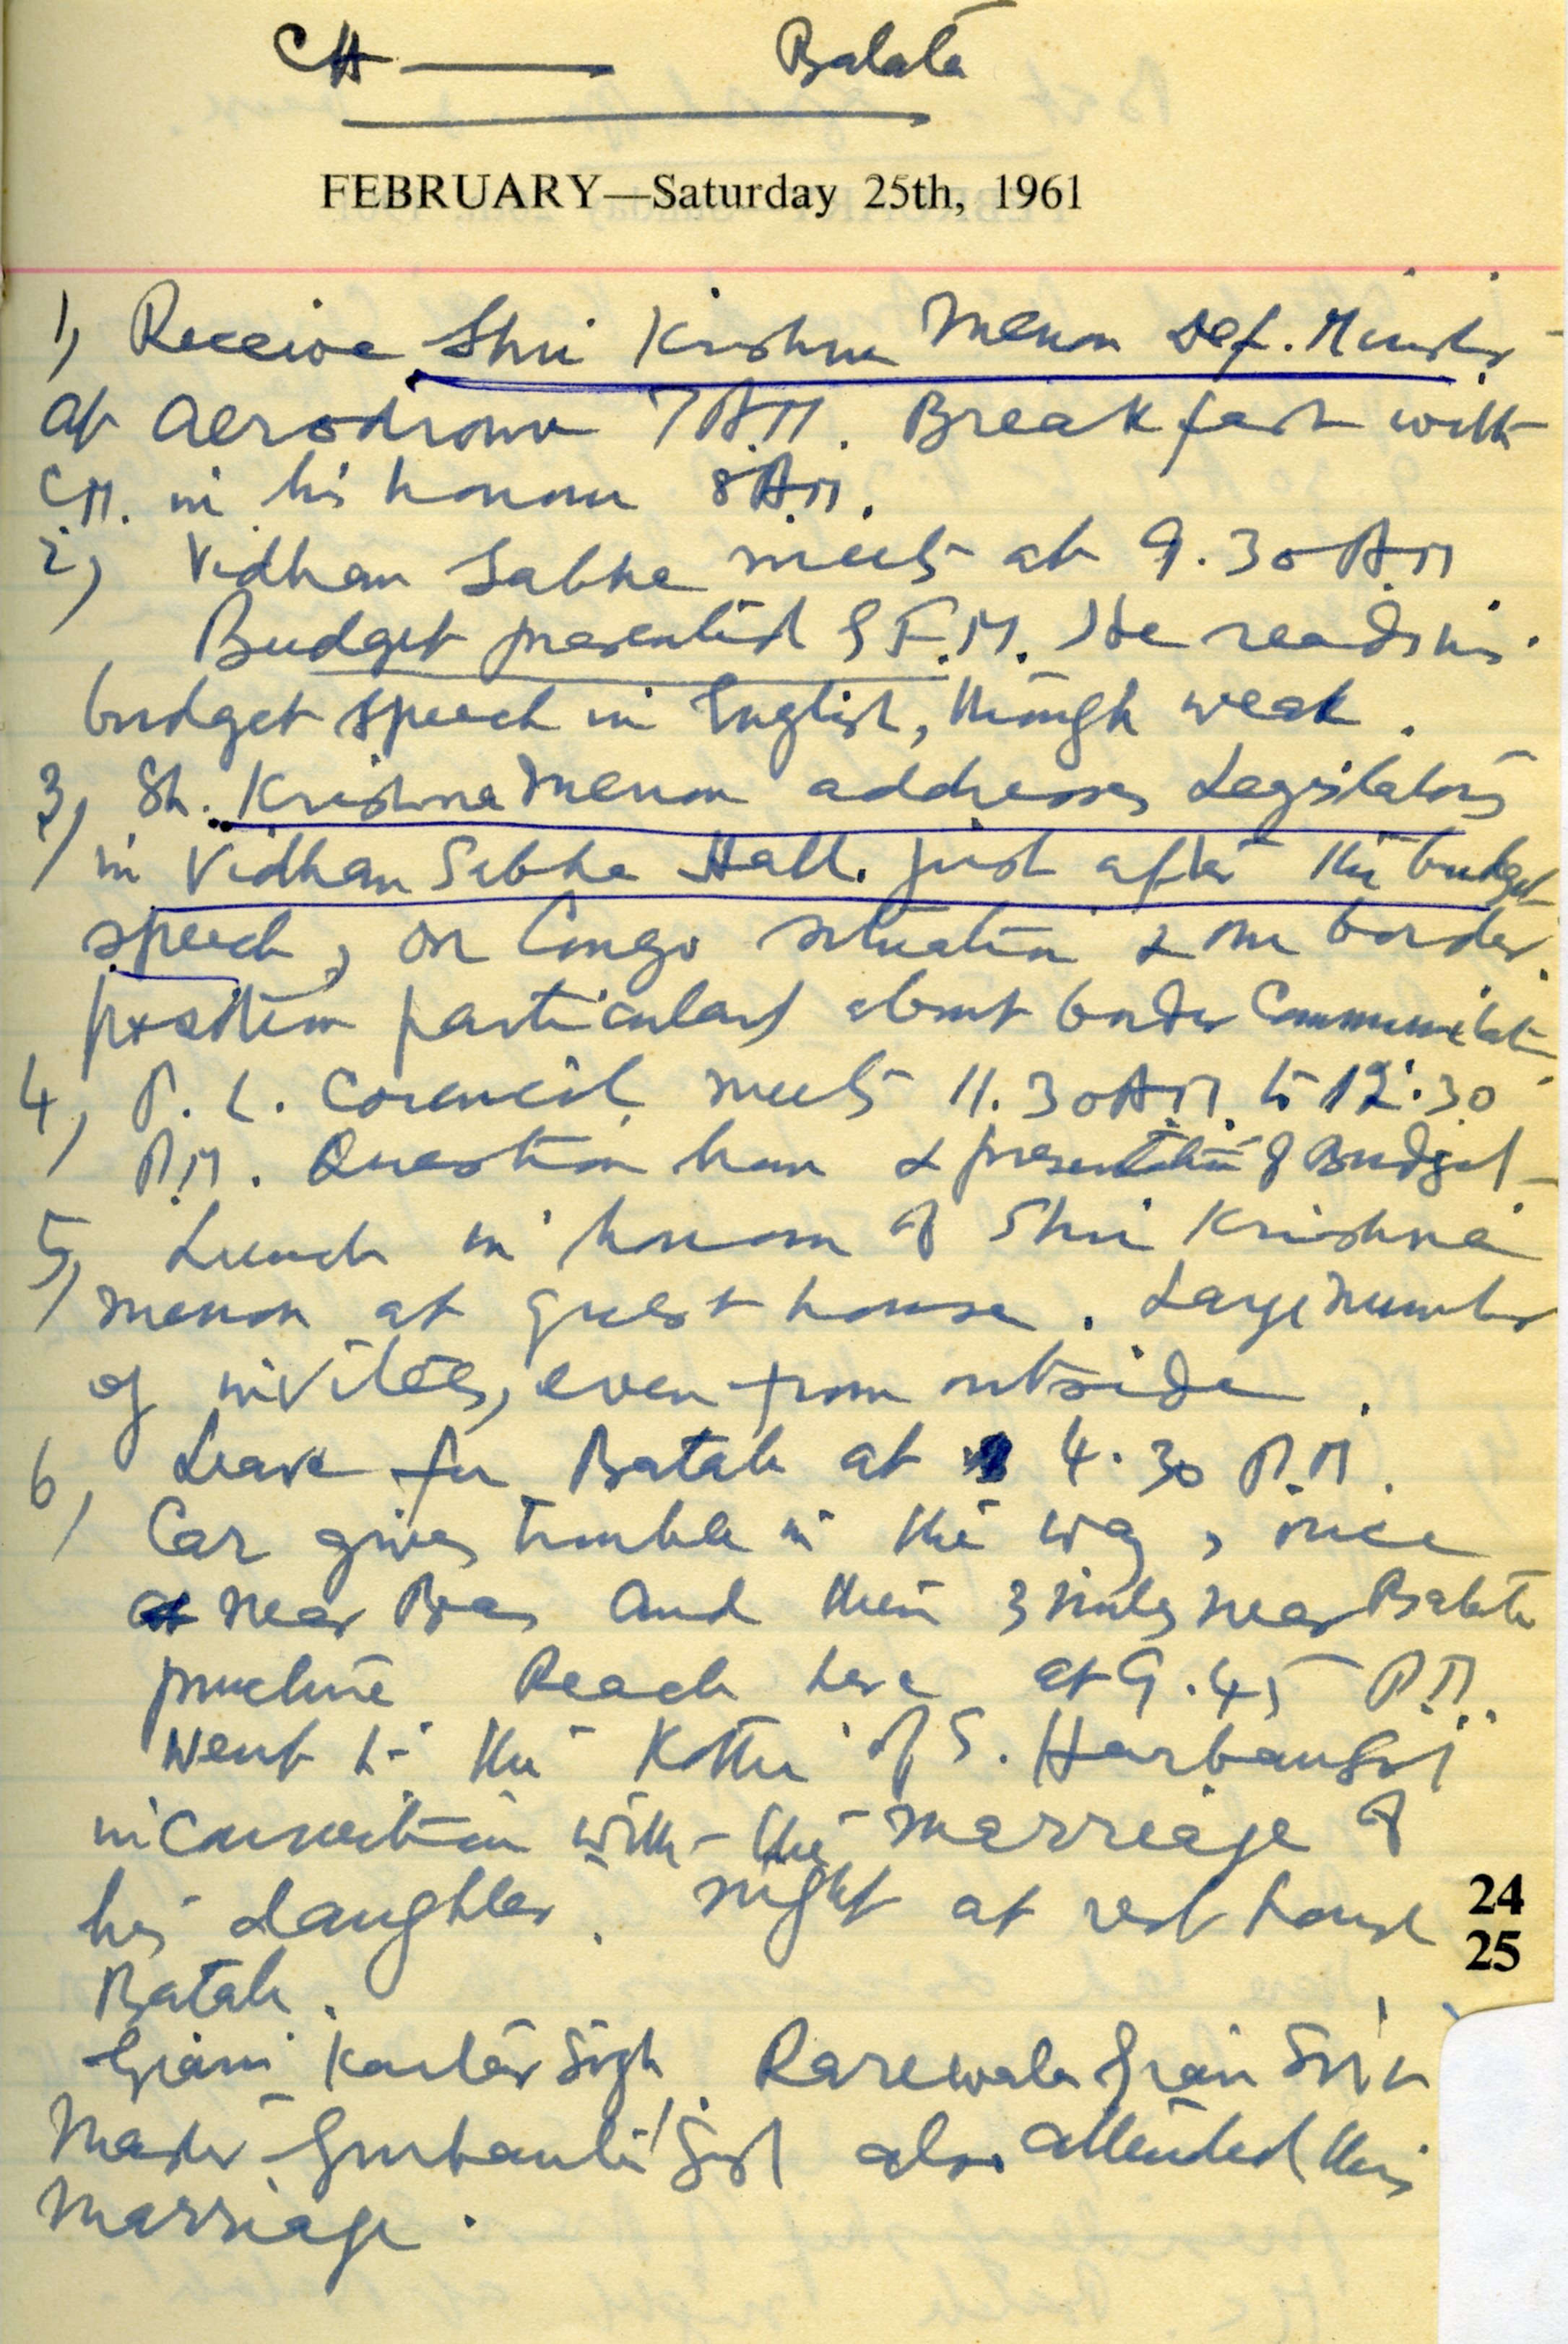 CH — Batala
FEBRUARY—Saturday 25th, 1961
1) Receive Shri Krishna Menon Def. Minister
at aerodrome 7 A.M. Breakfast with
C.M. in his honour 8 A.M.
2) Vidhan Sabha meets at 9.30 A.M
Budget presented F.M. He reads his
budget speech in English, though weak.
3) Sh. Krishna Menon addresses Legislators
in Vidhan Sabha Hall. just after the budget
speech, on Congo situation & our border
position particularly about border Communication
4) P. L. Council meets 11.30 A.M. to 12.30
P.M. Question hour & presentation of Budget
5) Lunch in honour of Shri Krishna
Menon at guest house. Large number
of invitees, even from outside.
6) Leave for Batala at 4.30 P.M.
Car gives trouble in the way, once
near Beas and then 3 miles near Batala
puncture Reach here at 9.45 P.M.
Went to the Kothi of S. Harbans
in connection with the marriage of
his daughter. Night at rest house
24
25
Batala.
Giani Kartar Singh, Rarewala Gian Singh
Master Gurbanta Singh also attended this
Marriage.